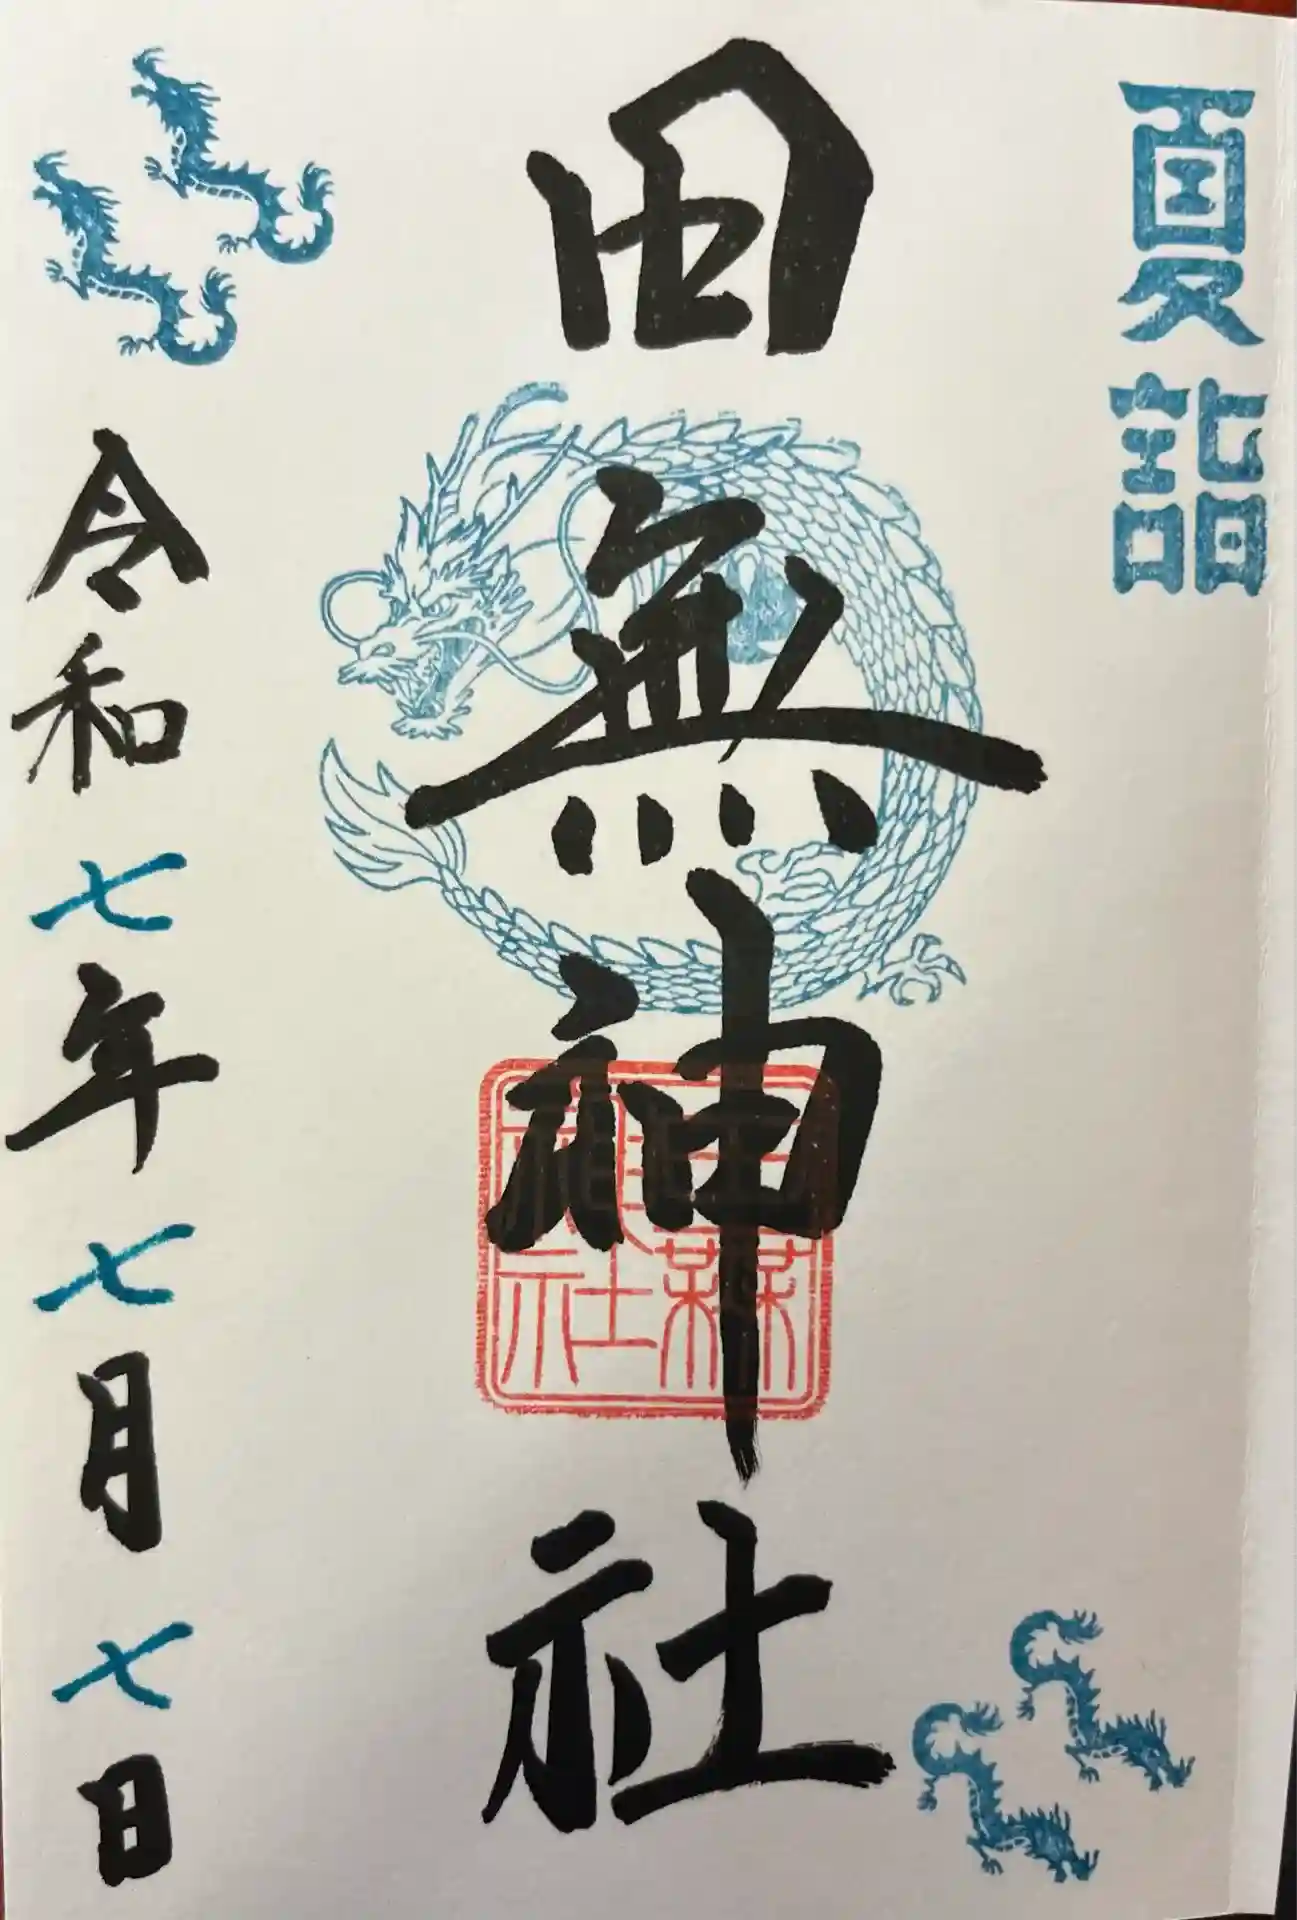 夏詣
田無神社
田無神社
令和七年七月七日